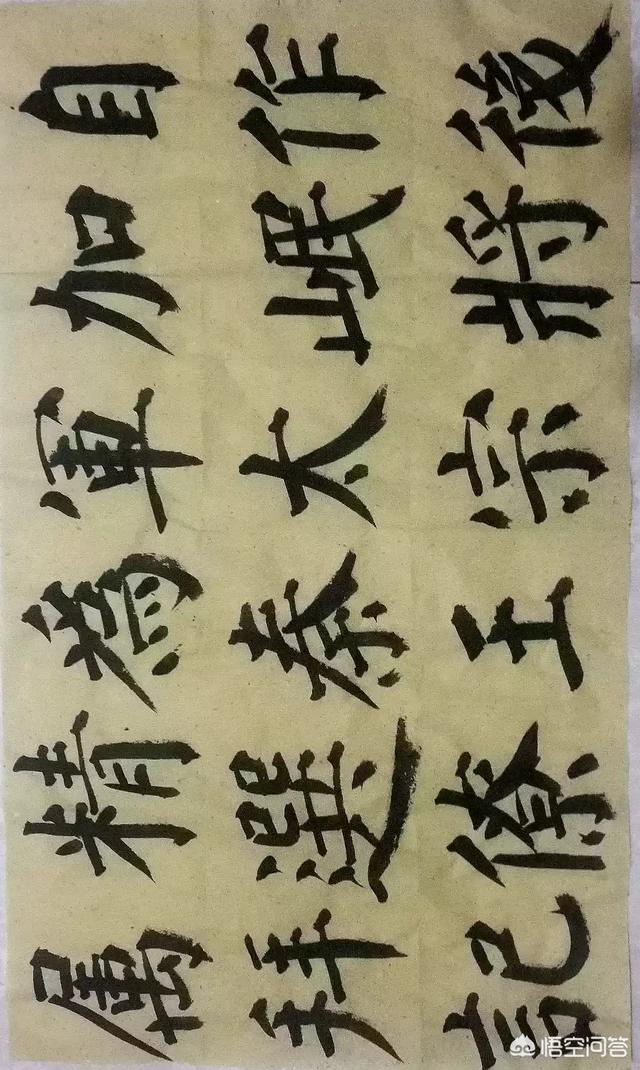 自作後
加岷將
軍太宗
為秦王
精選僚
屬拜記
悟空问答